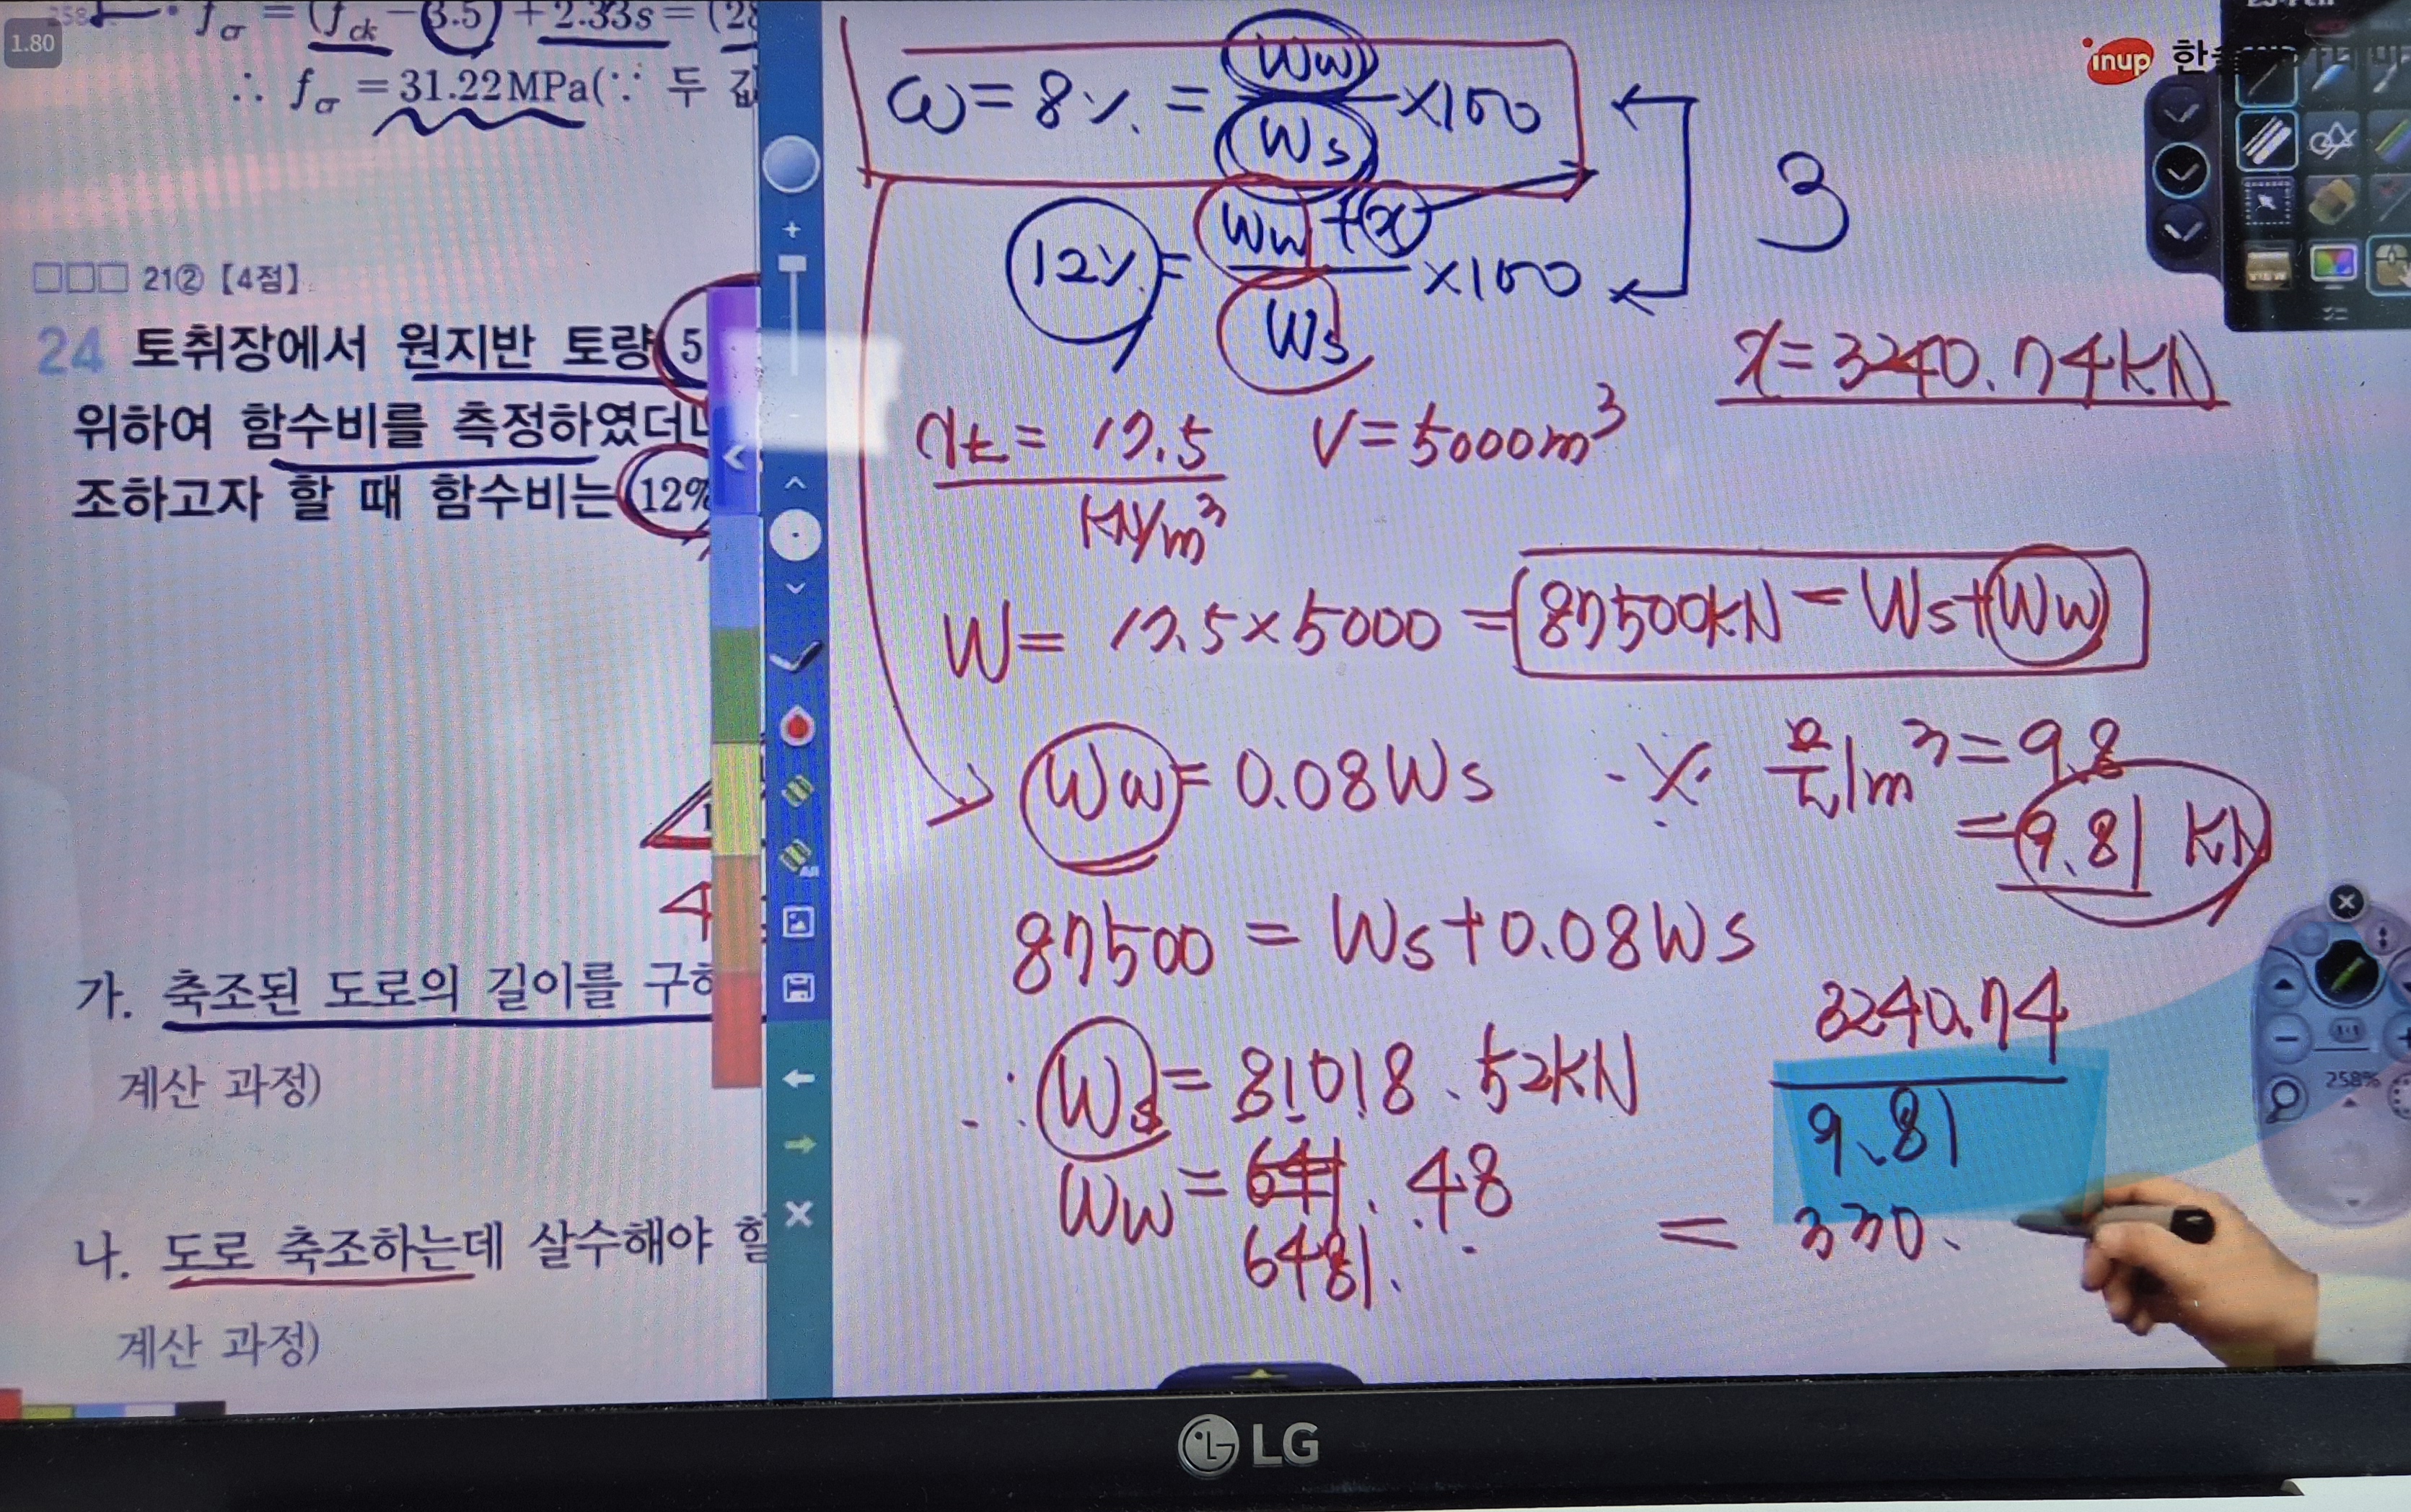 1.80
f_cr = (f_ck - 3.5) + 2.33s = (28
∴ f_cr = 31.22MPa(∵ 두 값
□□□ 21② 【4점】
24 토취장에서 원지반 토량 5
위하여 함수비를 측정하였더니
조하고자 할 때 함수비는 12%
가. 축조된 도로의 길이를 구하
계산 과정)
나. 도로 축조하는데 살수해야 할
계산 과정)
ω = 8% = Ww / Ws ×100
12% = Ww + x / Ws ×100
3
x = 3240.74kN
γt = 17.5 kN/m³ V = 5000m³
W = 17.5 × 5000 = 87500kN = Ws + Ww
Ww = 0.08Ws ※ 물/m³ = 9.8
= 9.81 kN
87500 = Ws + 0.08Ws
∴ Ws = 81018.52kN
Ww = 641.48
6481.
3240.74 / 9.81
= 330.
inup 한솔
VIEW
258%
LG